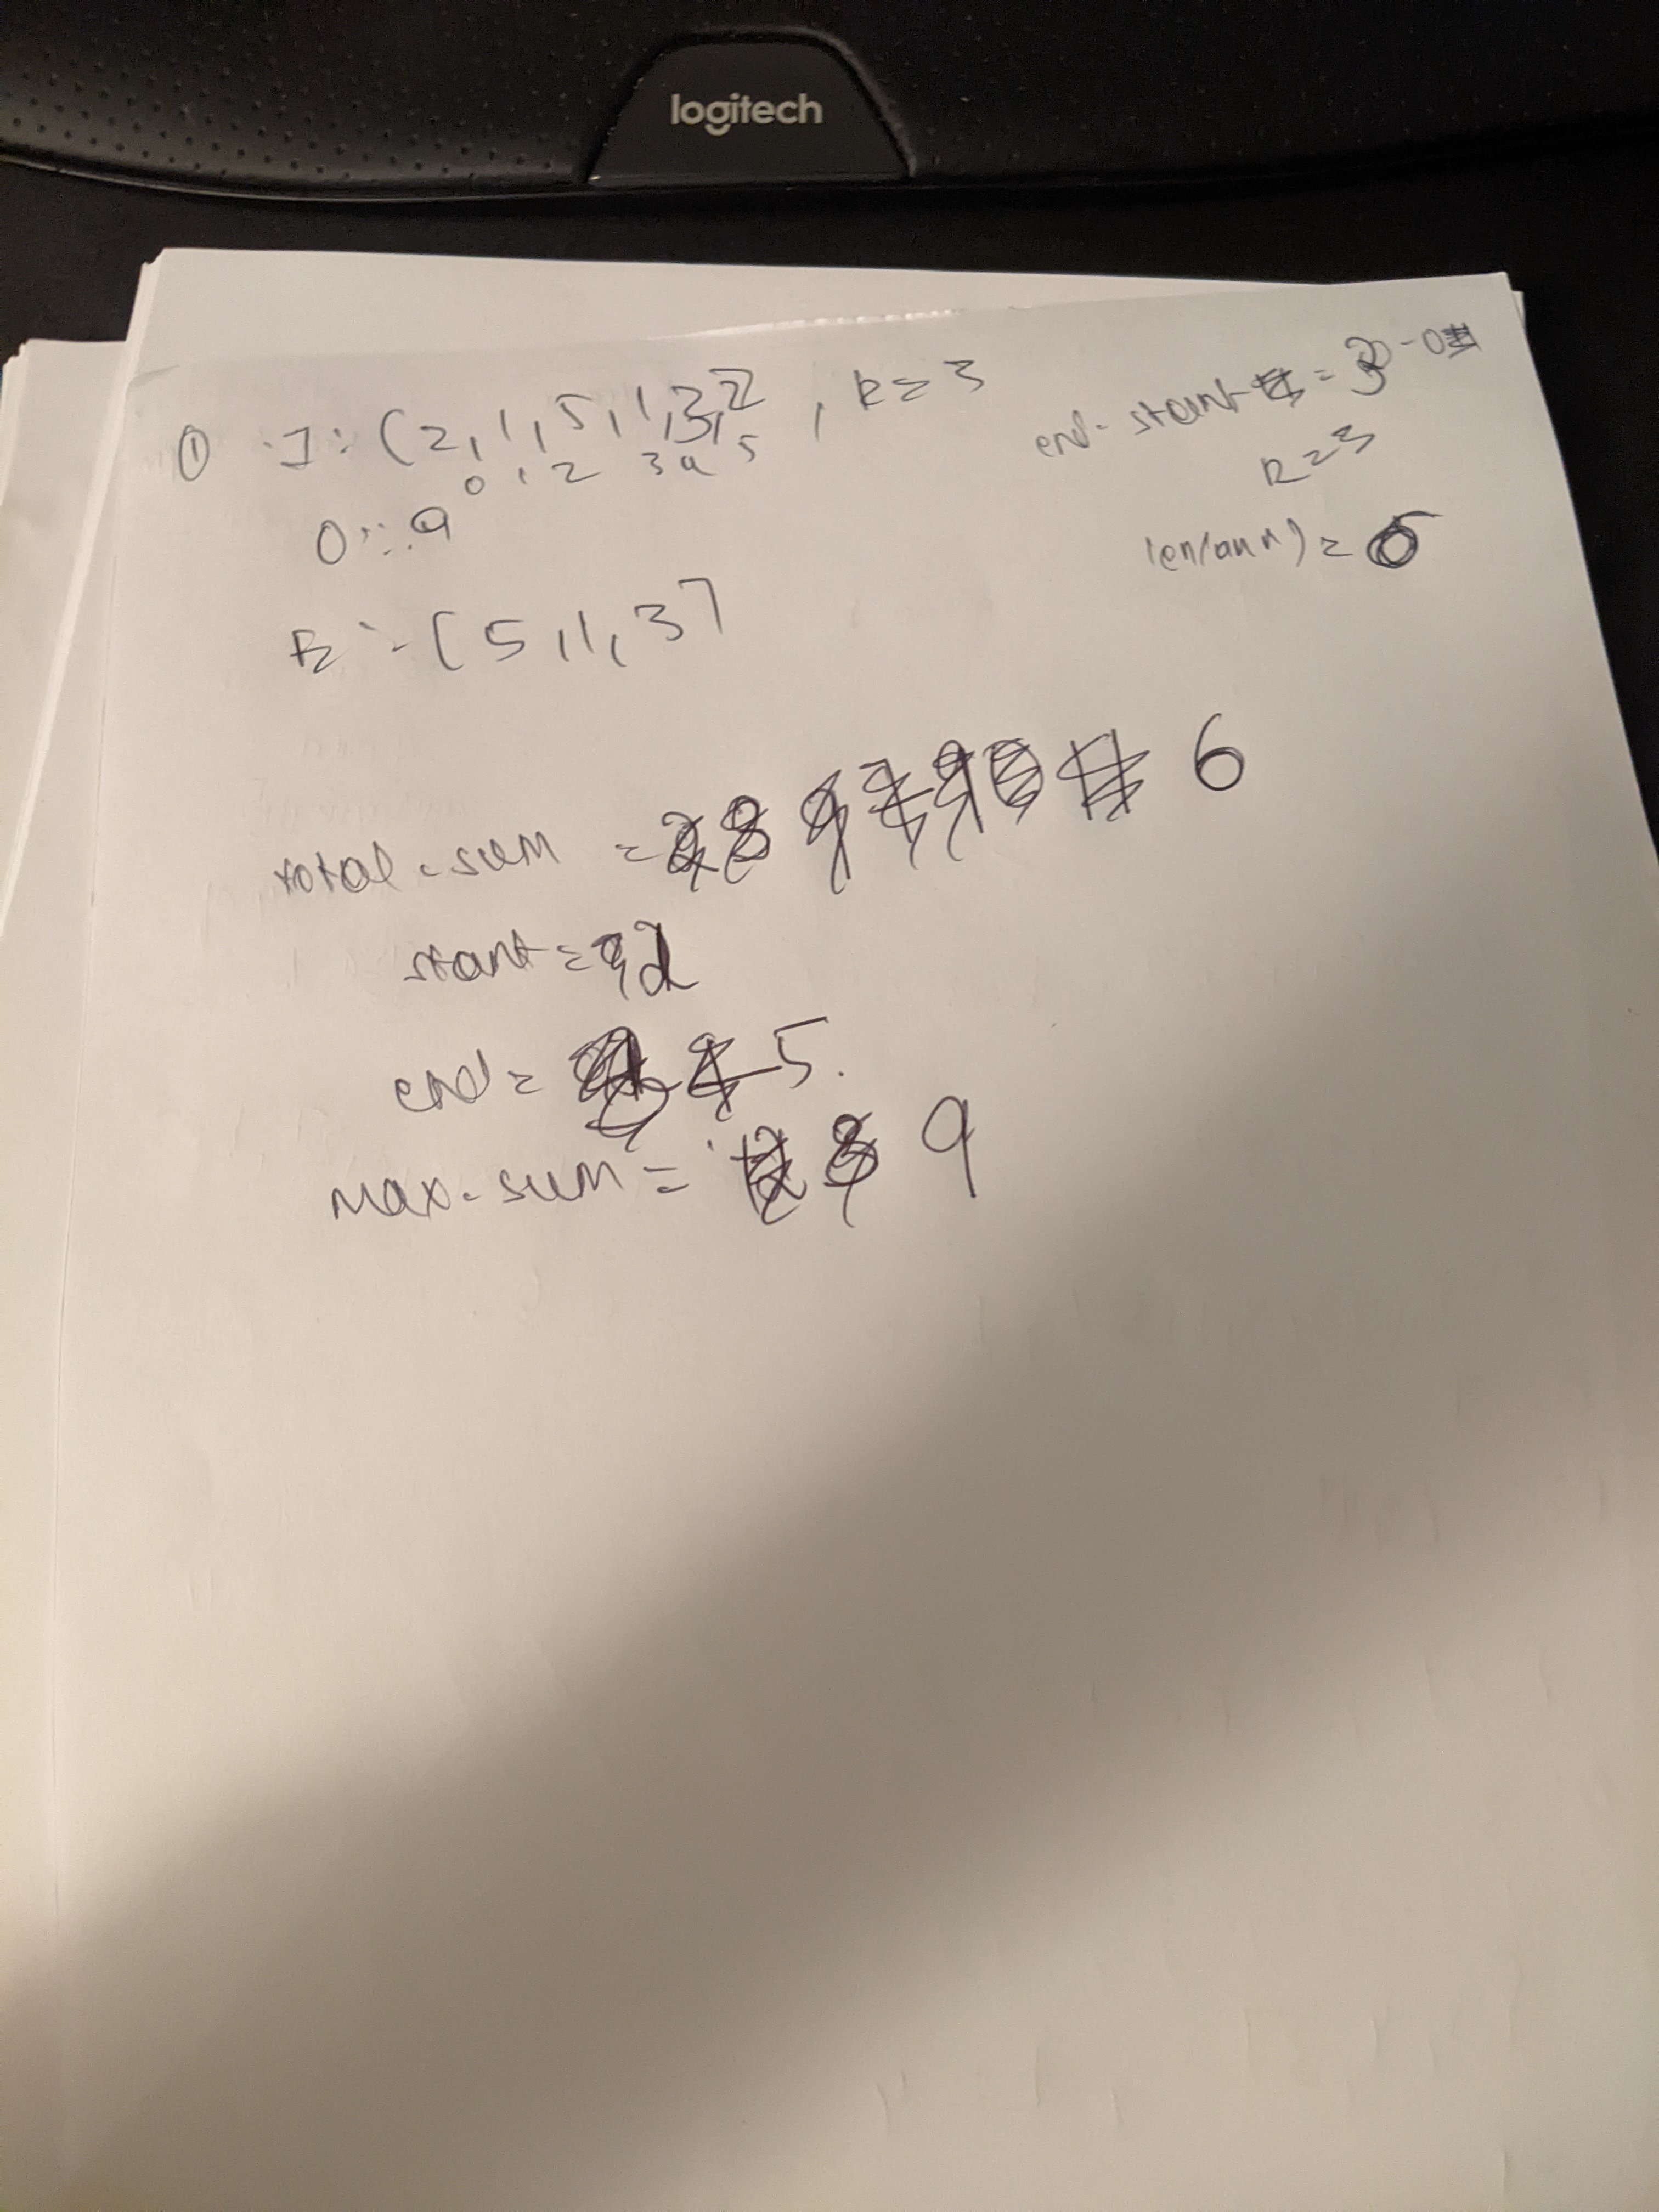 logitech
① I: [2, 1, 5, 1, 3, 2, k = 3
0 1 2 3 4 5
O: 9
E: [5, 1, 3]
end - start = 3 - 0
k = 3
len(arr) = 6
total_sum = 6
start =
end = 5.
max_sum = 9